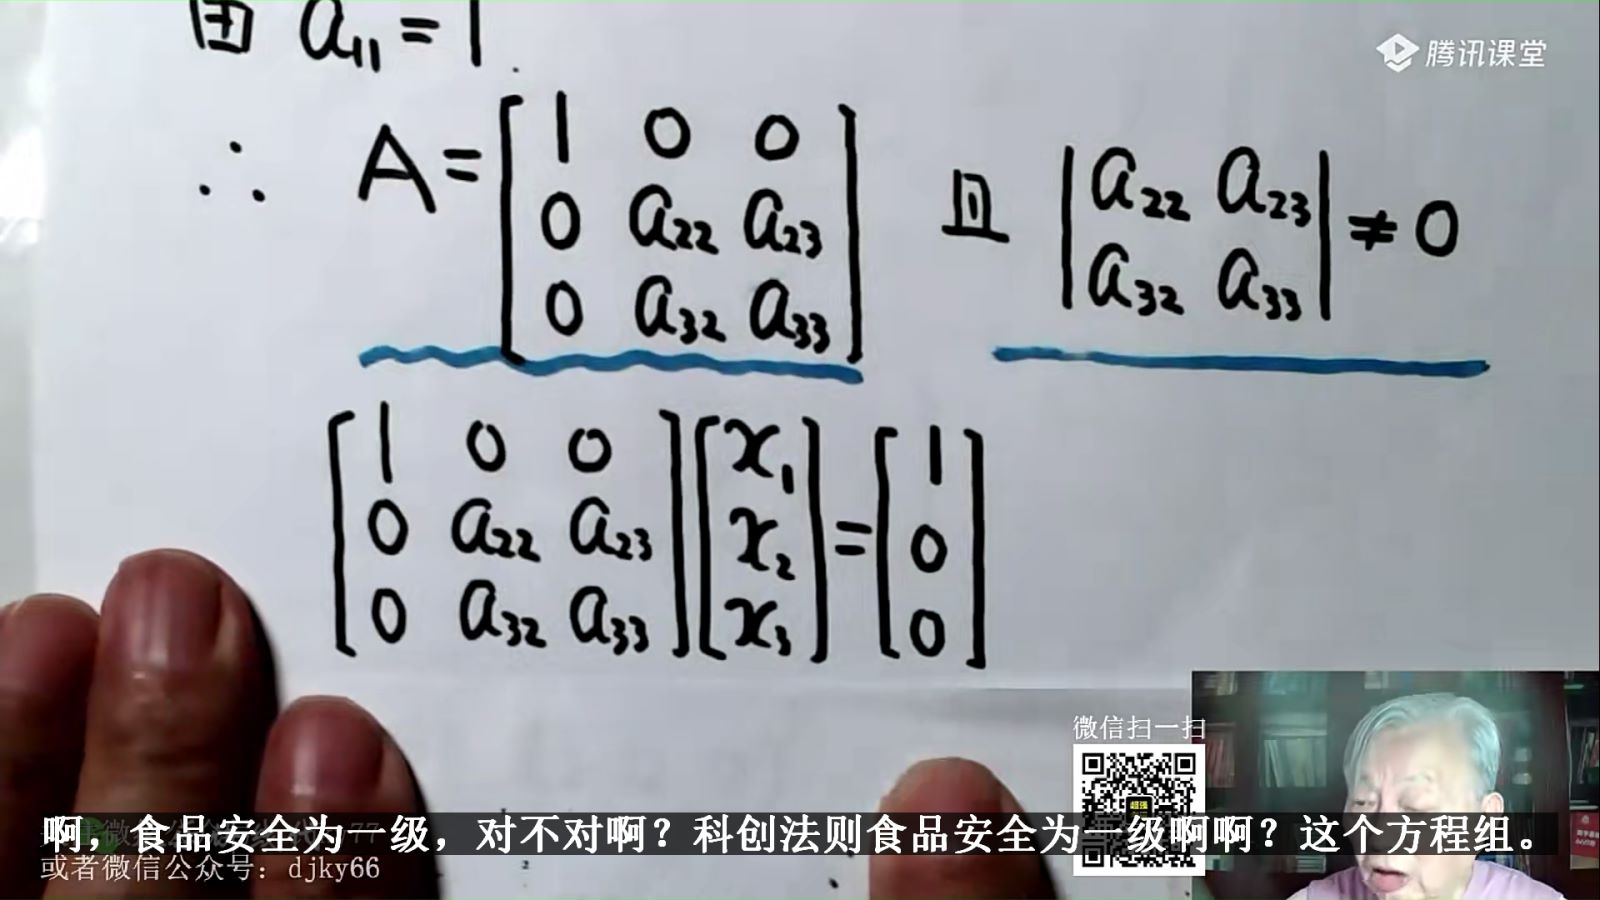 因 a₁₁ = 1
腾讯课堂
∴ A = [1 0 0; 0 a₂₂ a₂₃; 0 a₃₂ a₃₃] 且 |a₂₂ a₂₃; a₃₂ a₃₃| ≠ 0
[1 0 0; 0 a₂₂ a₂₃; 0 a₃₂ a₃₃] [x₁; x₂; x₃] = [1; 0; 0]
微信扫一扫
啊，食品安全为一级，对不对啊？科创法则食品安全为一级啊啊？这个方程组。
或者微信公众号：djky66